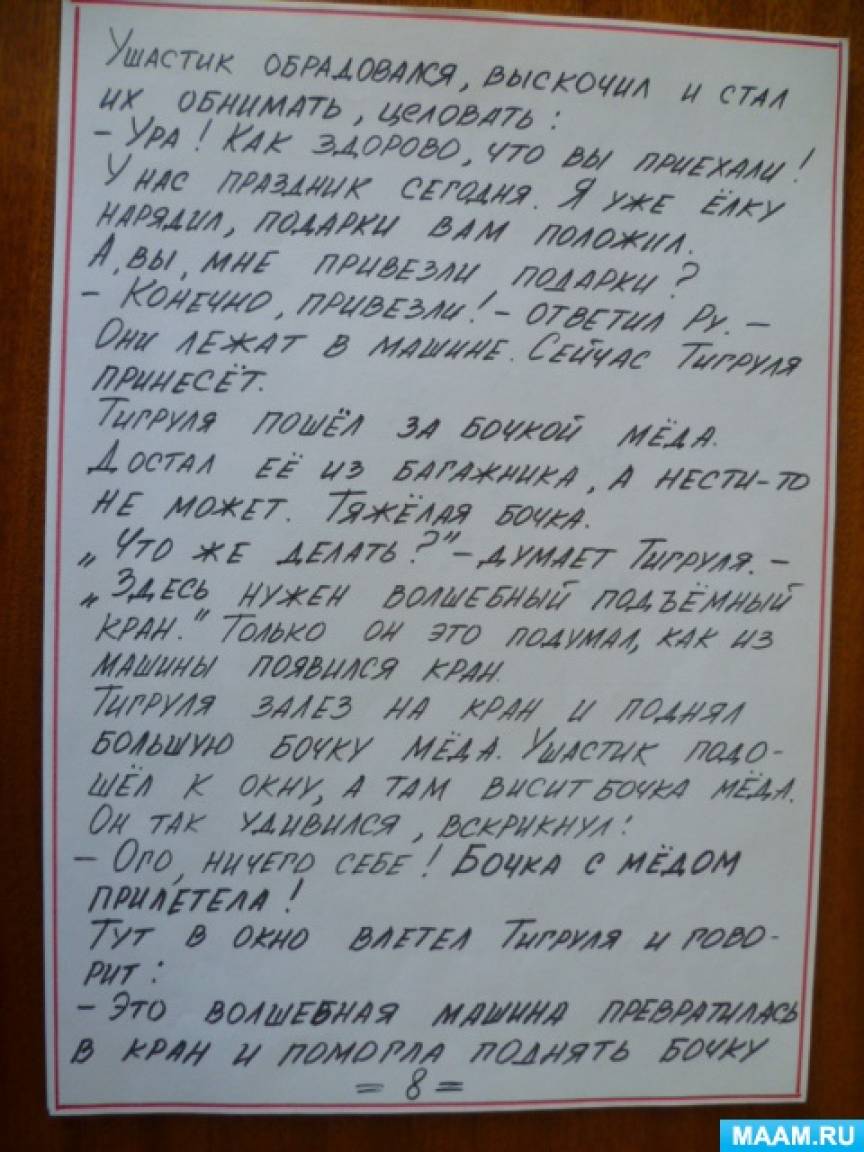 Ушастик обрадовался, выскочил и стал
их обнимать, целовать:
– Ура! Как здорово, что вы приехали!
У нас праздник сегодня. Я уже ёлку
нарядил, подарки вам положил.
А, вы, мне привезли подарки?
– Конечно, привезли! – ответил Ру. –
Они лежат в машине. Сейчас Тигруля
принесёт.
Тигруля пошёл за бочкой мёда.
Достал её из багажника, а нести-то
не может. Тяжёлая бочка.
„Что же делать?" – думает Тигруля. –
„Здесь нужен волшебный подъёмный
кран." Только он это подумал, как из
машины появился кран.
Тигруля залез на кран и поднял
большую бочку мёда. Ушастик подо-
шёл к окну, а там висит бочка мёда.
Он так удивился, вскрикнул:
– Ого, ничего себе! Бочка с мёдом
прилетела!
Тут в окно влетел Тигруля и гово-
рит:
– Это волшебная машина превратилась
в кран и помогла поднять бочку
= 8 =
MAAM.RU